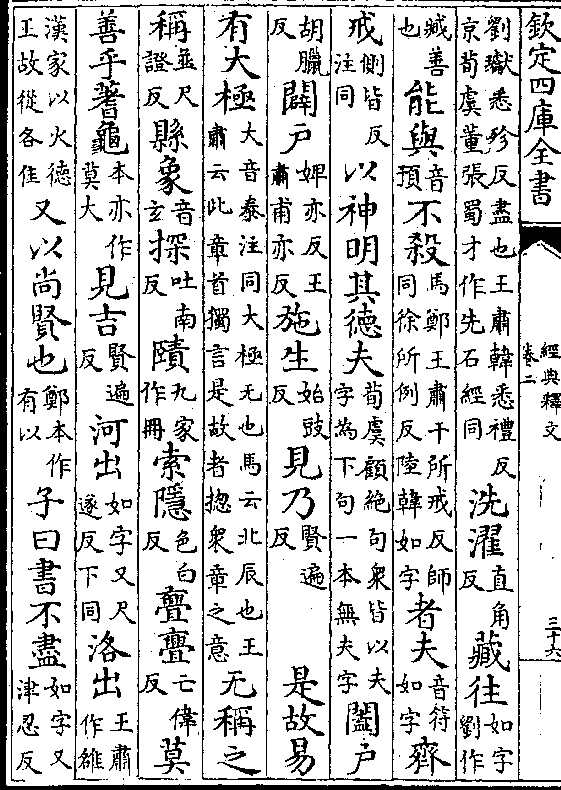 欽定四庫全書
經典釋文
卷二
三十六
劉瓛悉殄反盡也王肅韓悉禮反京荀虞董張蜀才作先石經同洗濯直角反藏往如字劉作
臧善也能與音預不殺馬鄭王肅干所戒反師同徐所例反陸韓如字者夫音符如字齊
戒側皆反注同以神明其德夫荀虞顧絶句衆皆以夫字為下句一本無夫字闔户
胡臘反闢户婢亦反王肅甫亦反施生始豉反見乃賢遍反是故易
有大極大音泰注同大極无也馬云北辰也王肅云此章首獨言是故者揔衆章之意无稱之
稱並尺證反縣象音玄探吐南反賾九家作冊索隱色白反亹亹亡偉反莫
善乎蓍龜本亦作莫大見吉賢遍反河出如字又尺遂反下同洛出王肅作雒
漢家以火德王故從各隹又以尚賢也鄭本作有以子曰書不盡如字又津忍反